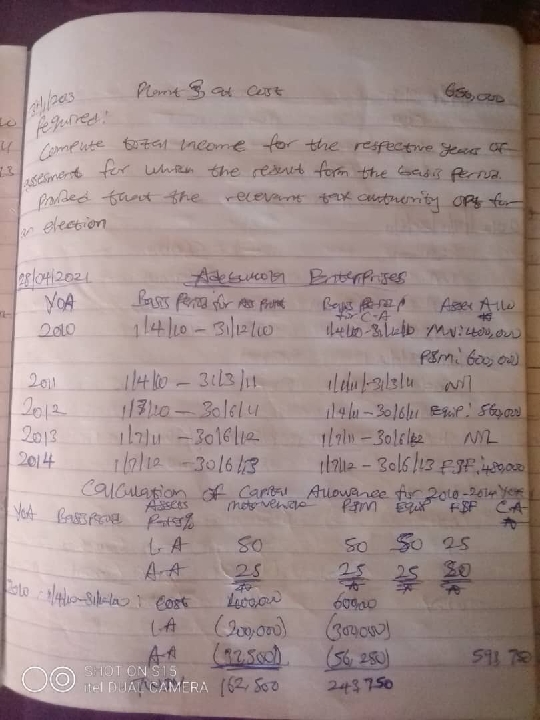 31/1/2013 Plant & at cost 650,000
Required:
Compute total income for the respective years of
assesment for which the result form the basis period
Provided that the relevant tax authority opts for
an election
28/04/2021 Enterprises
YOA Basis Period for Basis Period for C.A Asset
2010 1/4/10 - 31/12/10 1/4/10-31/12/10 MV: 400,000
P&M: 600,000
2011 1/4/10 - 31/3/11 1/1/11-31/3/11 Nil
2012 1/7/10 - 30/6/11 1/4/11 - 30/6/11 Equip: 560,000
2013 1/7/11 - 30/6/12 1/7/11 - 30/6/12 NIL
2014 1/7/12 - 30/6/13 1/7/12 - 30/6/13 F&F: 480,000
Calculation of Capital Allowance for 2010-2014 YOA
YOA Basis Period Assets Motor vehicle P&M Equip F&F C.A
Rates %
I.A 50 50 50 25
A.A 25 25 25 20
2010 1/4/10-31/12/10: Cost 400,000 600,000
I.A (200,000) (300,000)
A.A (37,500) (56,250) 593,750
162,500 243,750
SHOT ON S15
itel DUAL CAMERA